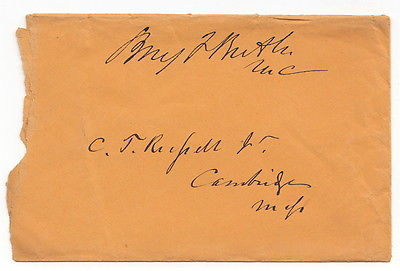 Benj F Butler
MC
C. T. Russell Jr.
Cambridge
Mass